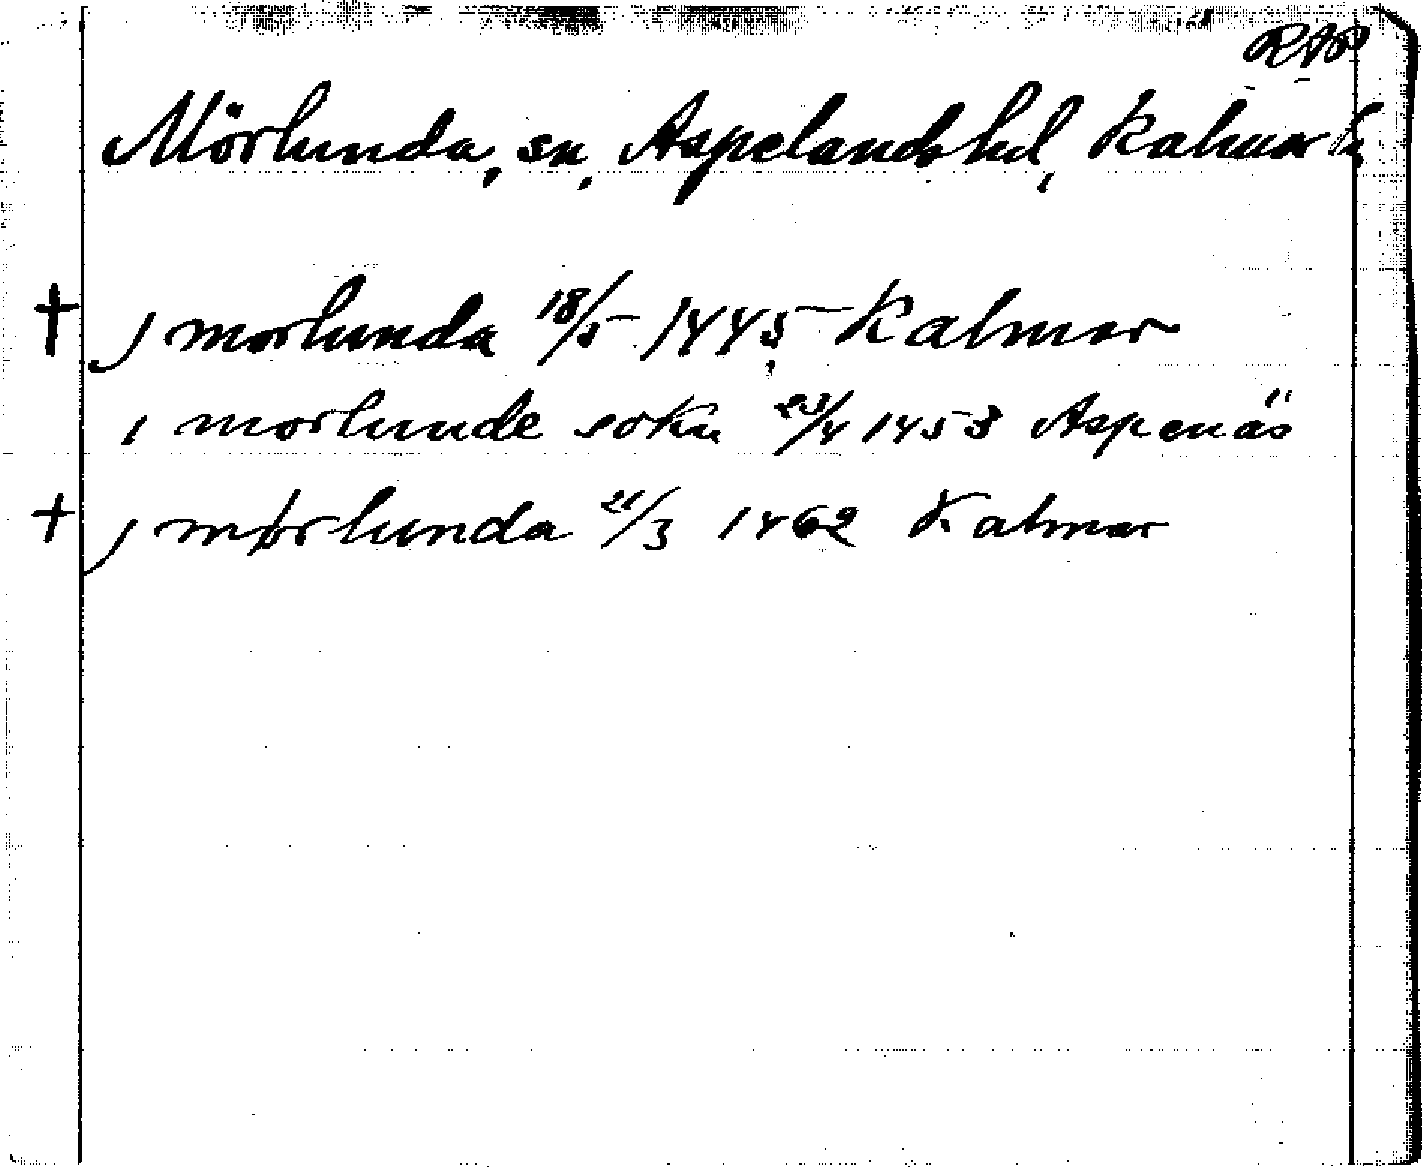 RAP
Mörlunda, sn, Aspelands hd, Kalmar l.
† j morlunda 18/5 1445 Kalmar
i morlunde sokn 23/4 1453 Aspenäs
† j mørlunda 21/3 1462 Kalmar